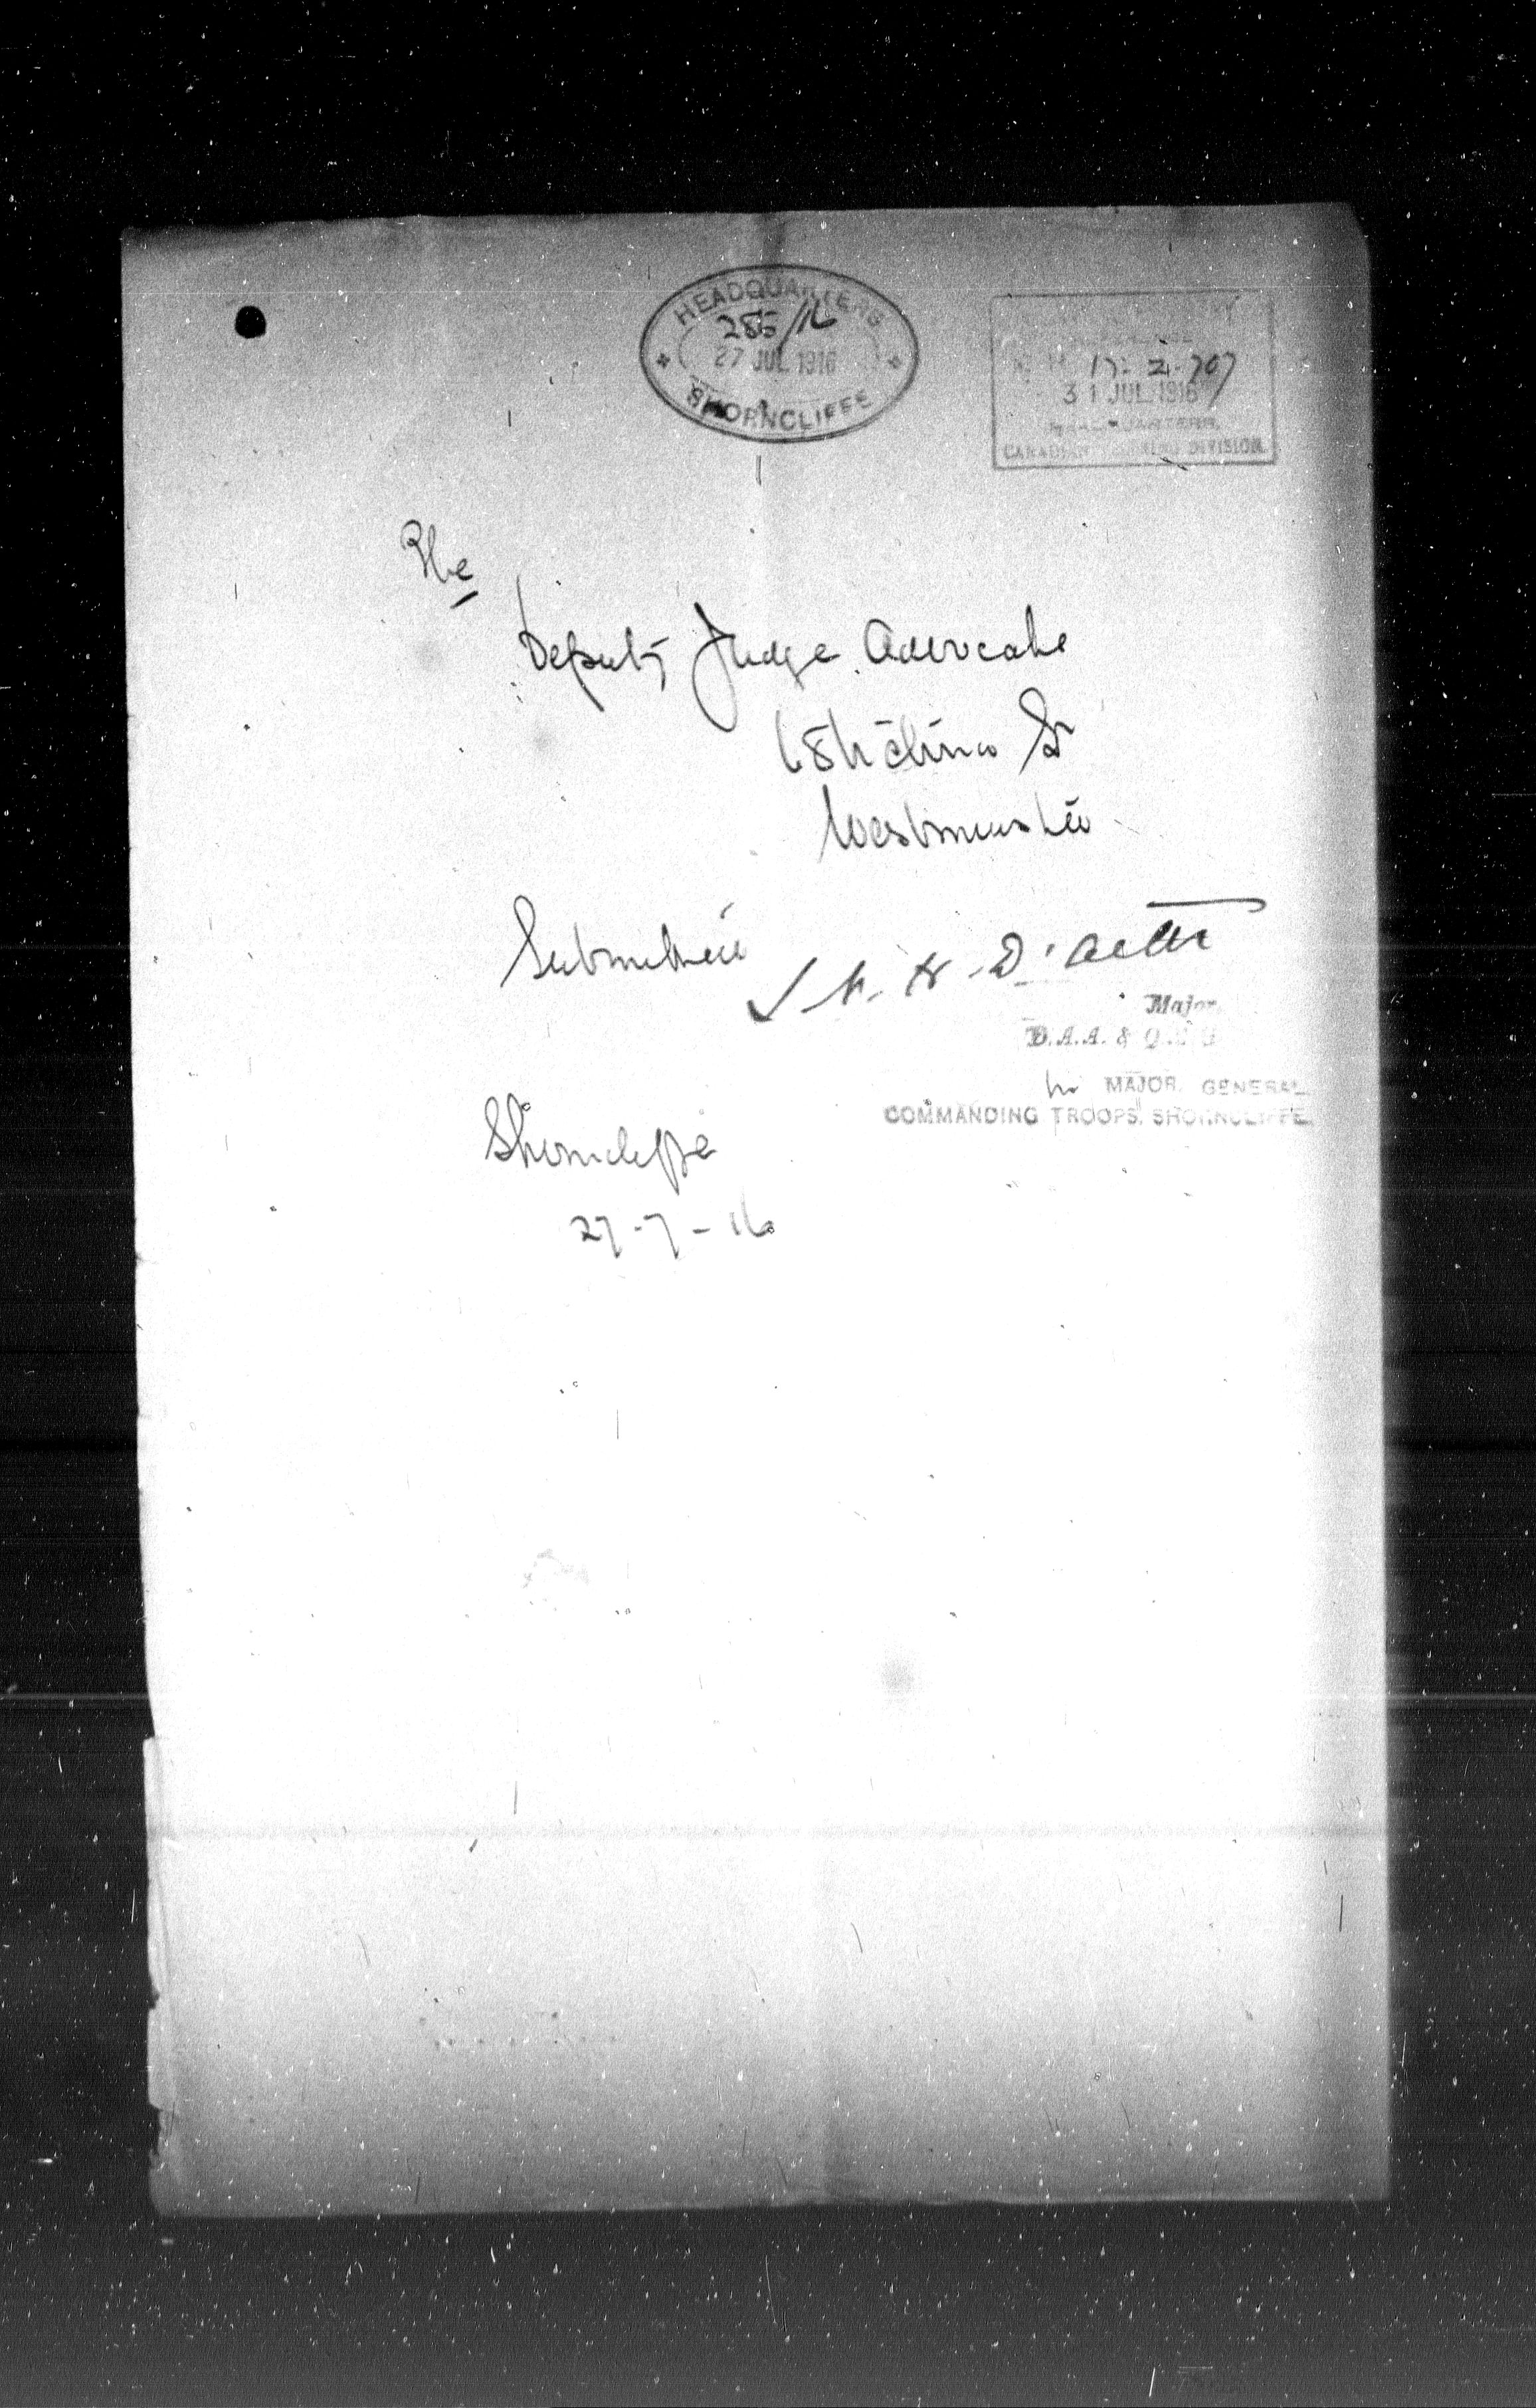 HEADQUARTERS
286/16
27 JUL 1916
SHORNCLIFFE
17-2-707
31 JUL 1916
HEADQUARTERS,
CANADIAN TRAINING DIVISION.
The
Deputy Judge Advocate
St
Westminster
Submitted
Major.
D.A.A. & Q.M.G
for MAJOR GENERAL
COMMANDING TROOPS, SHORNCLIFFE.
Shorncliffe
27-7-16